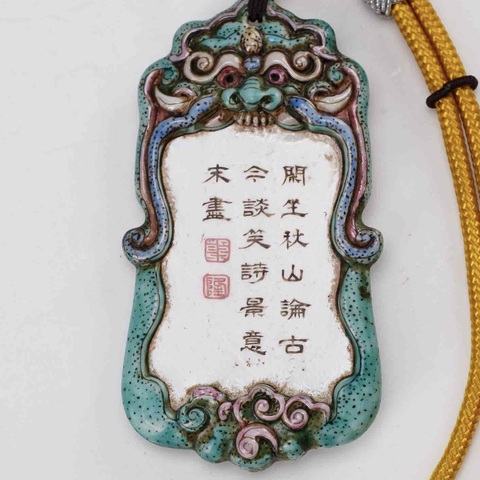 閑坐秋山論古
今談笑詩景意
未盡
郎
隆